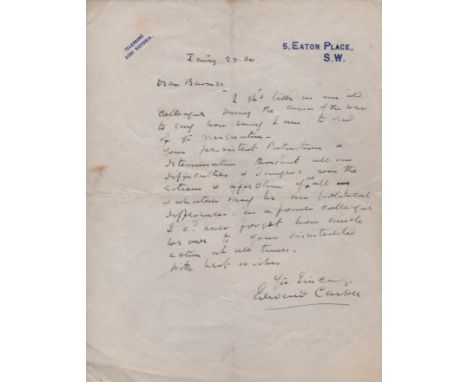 TELEPHONE
VICTORIA.
5, EATON PLACE,
S.W.
20.
Dear Barnes
I shd like as an old
colleague during the crisis of the War
to say how sorry I am to read
of yr resignation.
Your persistent Patriotism &
determination throughout all our
difficulties & dangers won the
esteem & affection of us all
& whatever may be our political
differences, as a former colleague
I cd never forget how much
we owe to your
action at all times.
With best wishes
Yrs Sincerely
Edward Carson